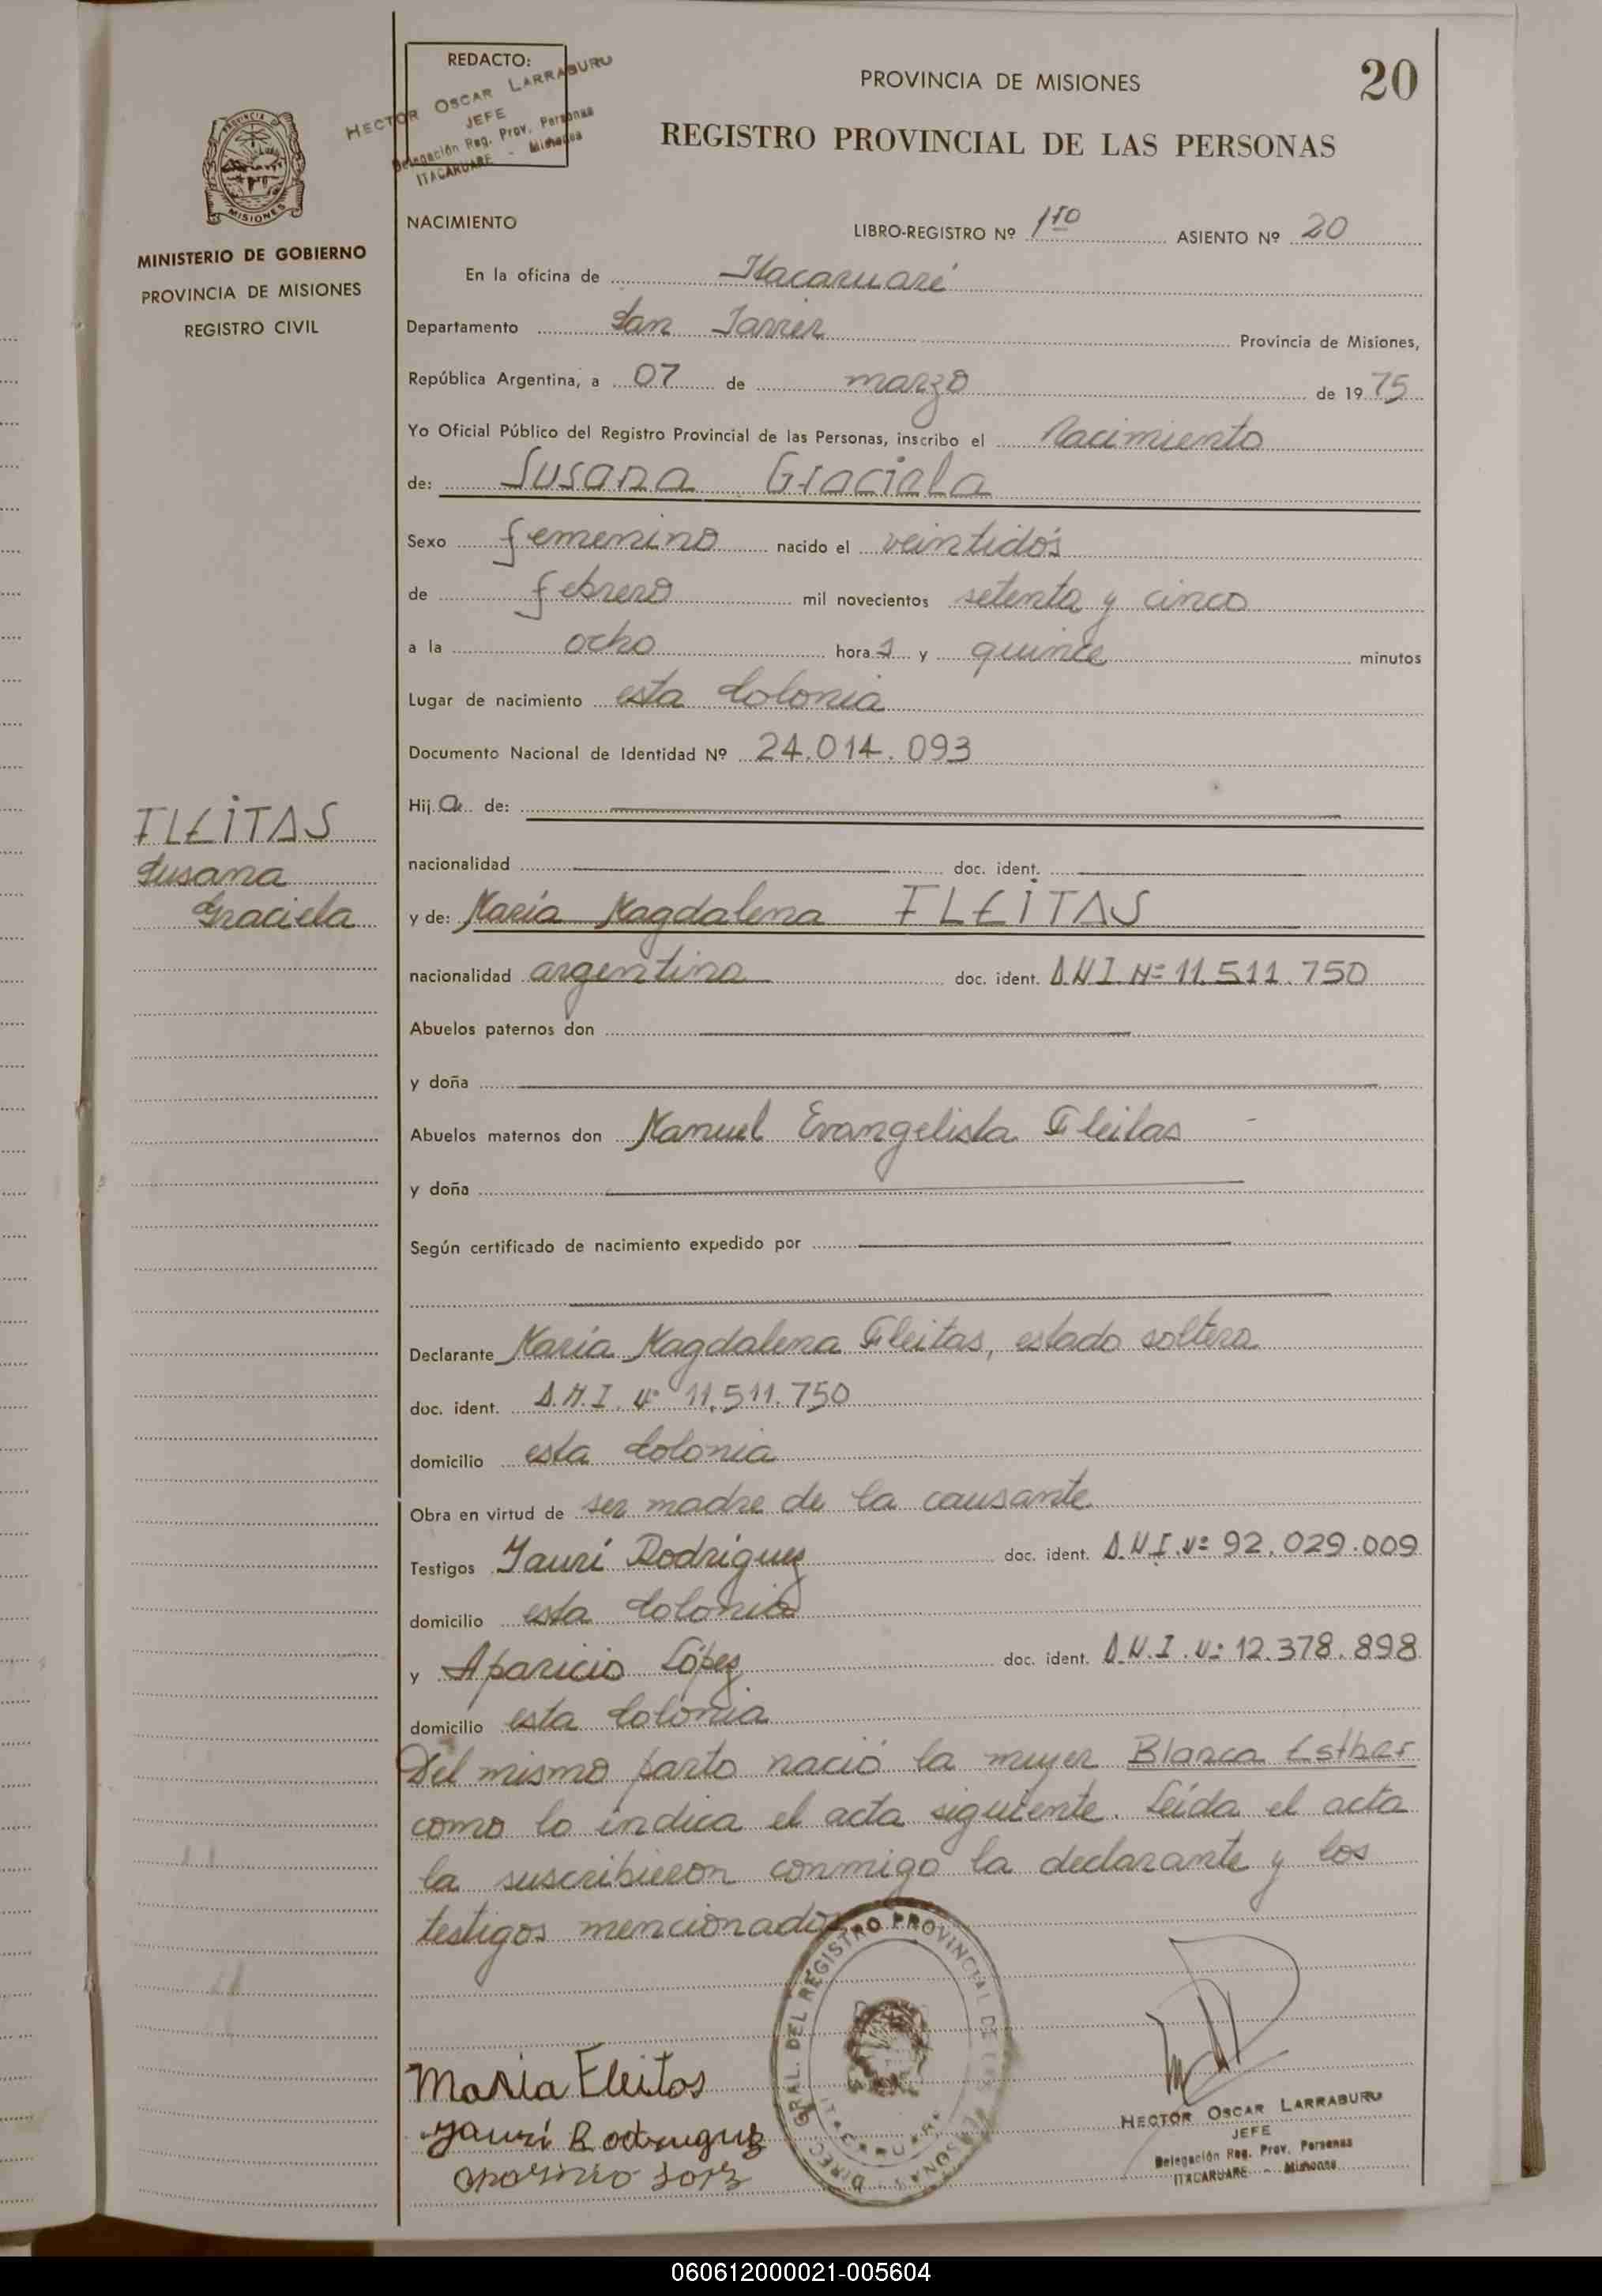 REDACTO:
HECTOR OSCAR LARRABURU
JEFE
Delegación Reg. Prov. Personas
ITACARUARE - Misiones
PROVINCIA DE MISIONES
20
REGISTRO PROVINCIAL DE LAS PERSONAS
PROVINCIA
MISIONES
MINISTERIO DE GOBIERNO
PROVINCIA DE MISIONES
REGISTRO CIVIL
NACIMIENTO LIBRO-REGISTRO Nº 1ro ASIENTO Nº 20
En la oficina de Itacaruaré
Departamento San Javier Provincia de Misiones,
República Argentina, a 07 de marzo de 1975
Yo Oficial Público del Registro Provincial de las Personas, inscribo el Nacimiento
de: Susana Graciela
Sexo femenino nacido el veintidós
de febrero mil novecientos setenta y cinco
a la ocho hora s y quince minutos
Lugar de nacimiento esta Colonia
Documento Nacional de Identidad Nº 24.014.093
Hij a de:
FLEITAS
Susana
Graciela
nacionalidad doc. ident.
y de: María Magdalena FLEITAS
nacionalidad argentina doc. ident. D.N.I. Nº 11.511.750
Abuelos paternos don
y doña
Abuelos maternos don Manuel Evangelista Fleitas
y doña
Según certificado de nacimiento expedido por
Declarante María Magdalena Fleitas, estado soltera
doc. ident. D.N.I. Nº 11.511.750
domicilio esta Colonia
Obra en virtud de ser madre de la causante
Testigos Jaurí Rodriguez doc. ident. D.N.I. Nº 92.029.009
domicilio esta Colonia
y Aparicio López doc. ident. D.N.I. Nº 12.378.898
domicilio esta Colonia
Del mismo parto nació la mujer Blanca Esther
como lo indica el acta siguiente. Leída el acta
la suscribieron conmigo la declarante y los
testigos mencionados
DIREC. GRAL. DEL REGISTRO PROVINCIAL DE LAS PERSONAS
ITACARUARE
Maria Fleitas
Jaurí Rodriguez
HECTOR OSCAR LARRABURU
JEFE
Delegación Reg. Prov. Personas
ITACARUARE - Misiones
060612000021-005604